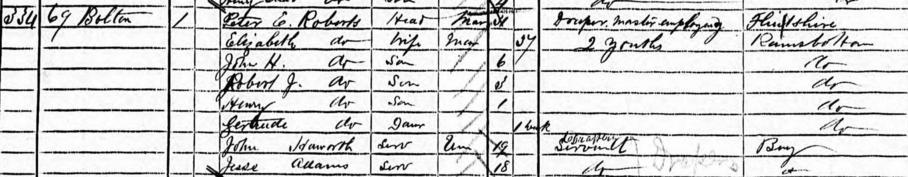 334 69 Bolton 1 Peter E. Roberts Head Mar Draper master employing Flintshire
Elizabeth do Wife Mar 37 2 Youths Ramsbottom
John H. do Son 6 do
Robert J. do Son 3 do
Henry do Son 1 do
Gertrude do Daur 1 week do
John Haworth Serv Unm 19 Servant Drapers Bury
Jesse Adams Serv 18 do